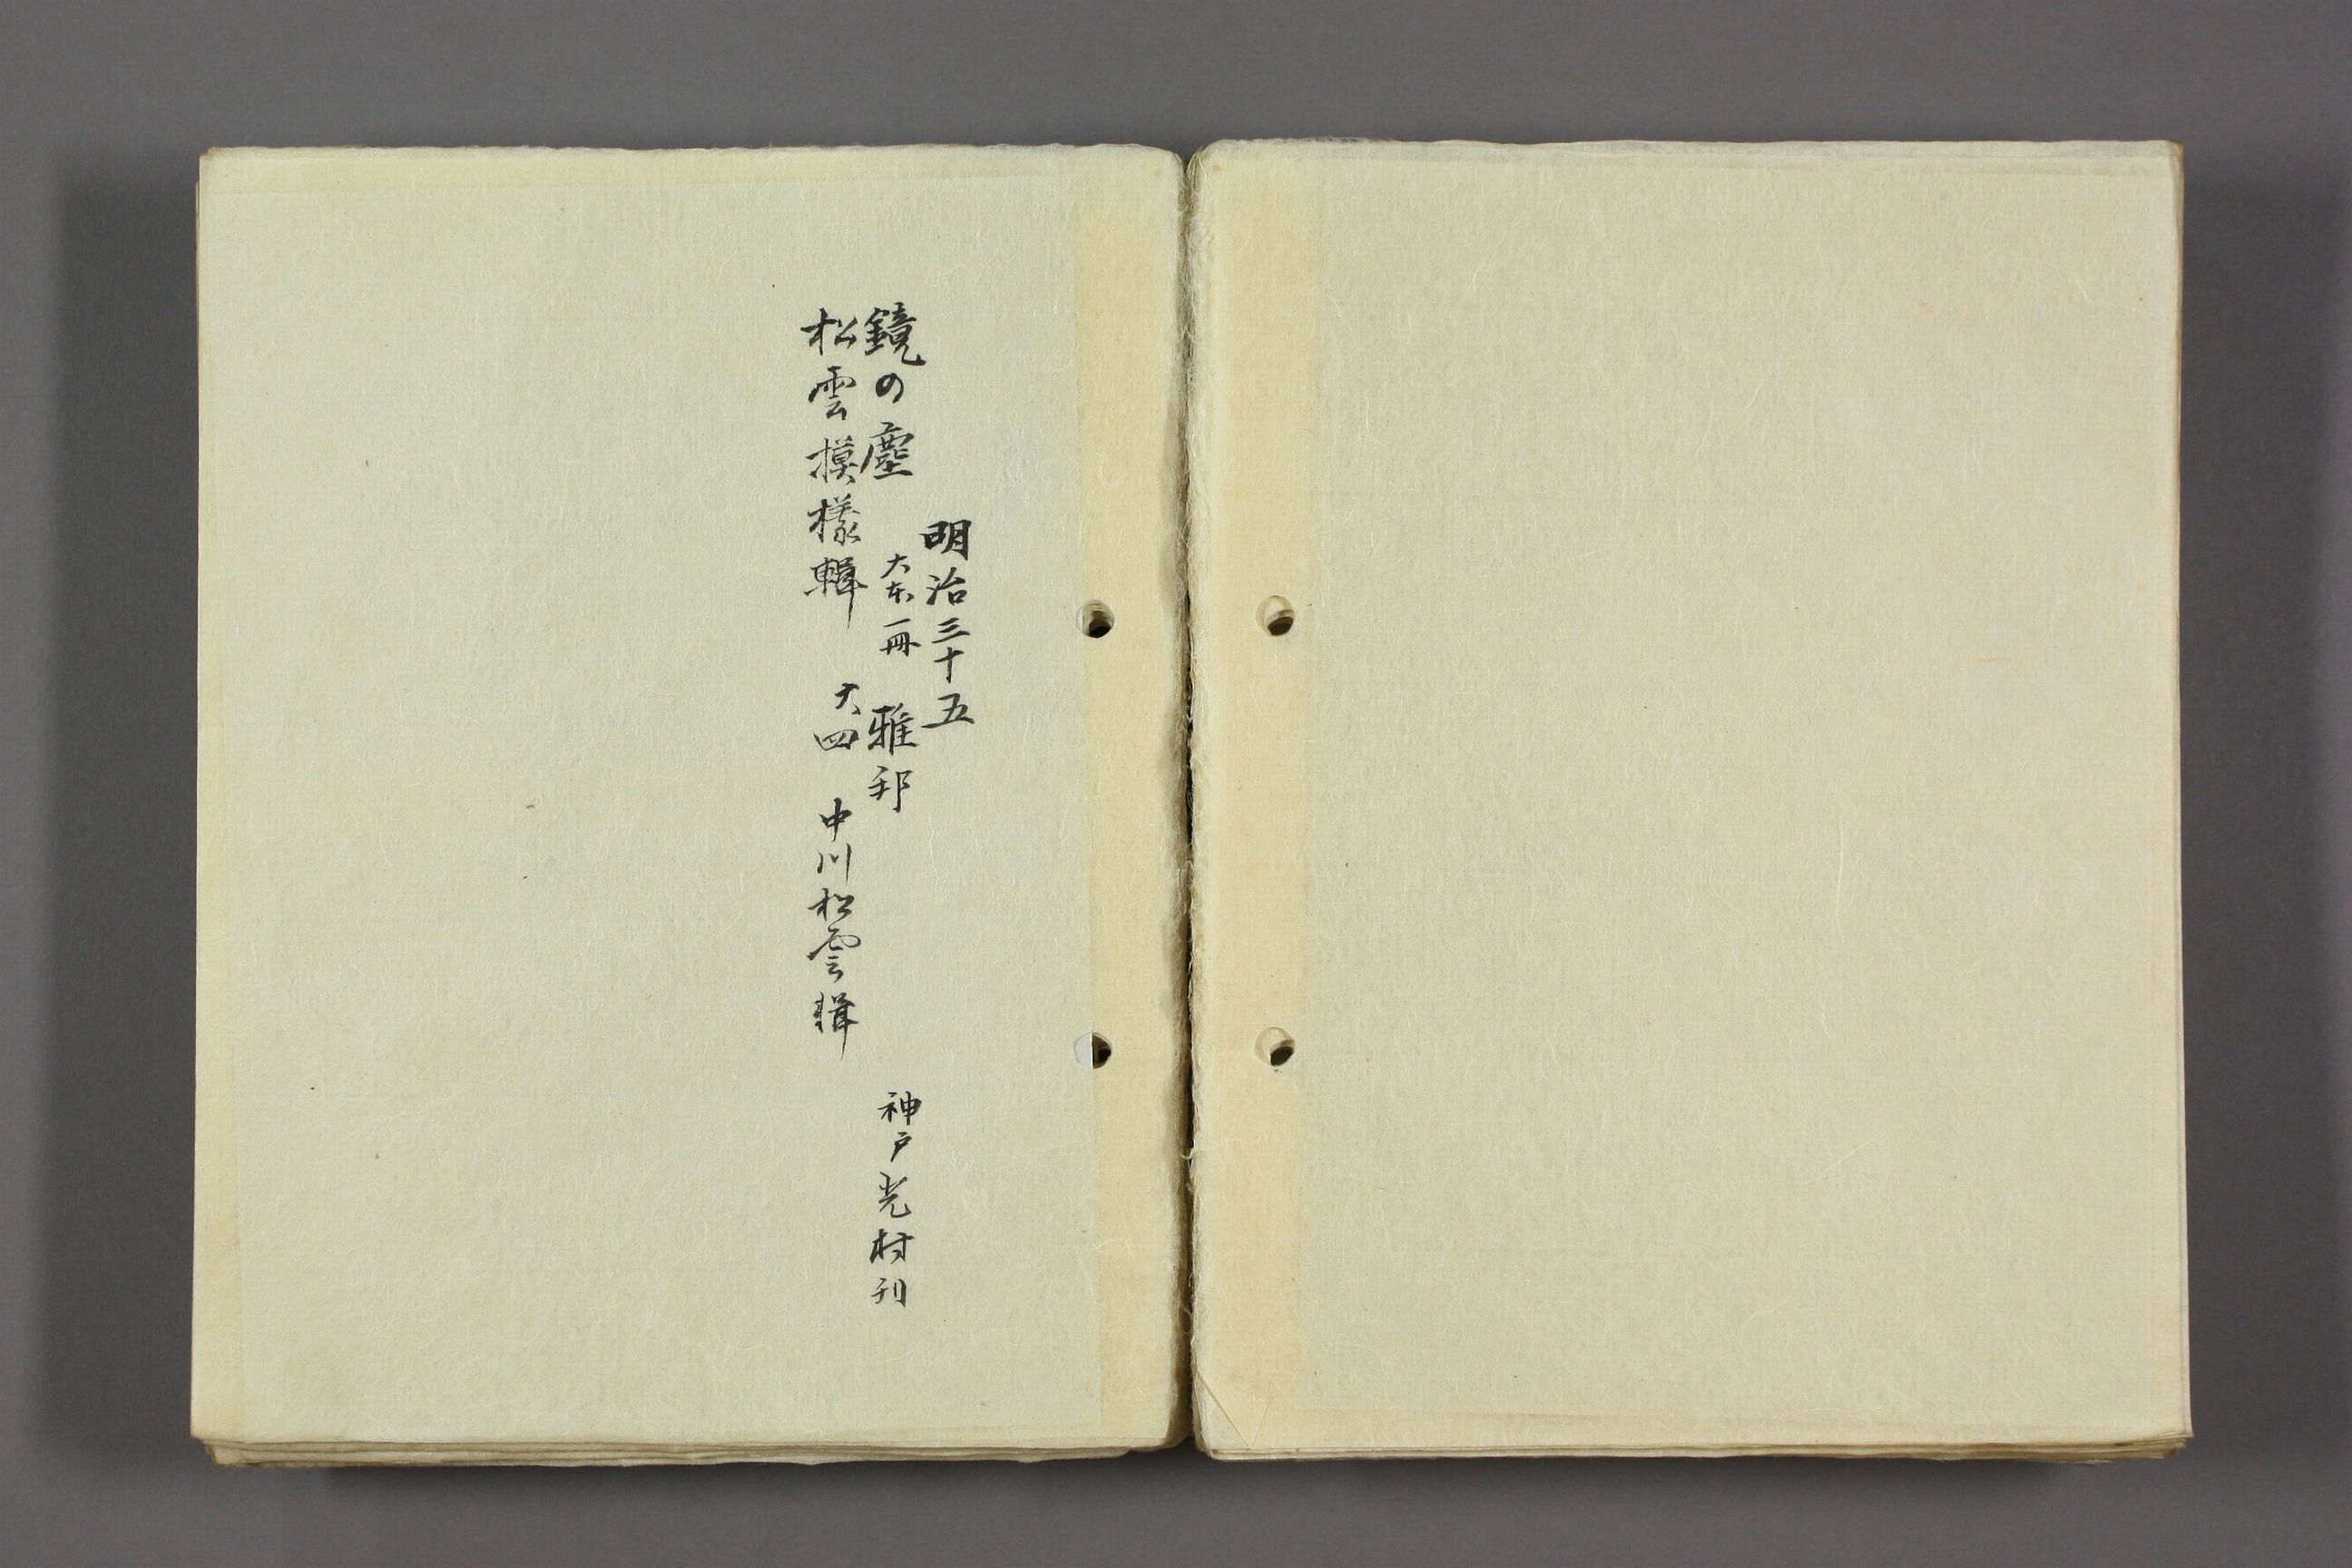 明治三十五
鏡の塵 大本一冊 雅邦 神戸光村刊
松雲摸様輯 大四 中川松雲輯